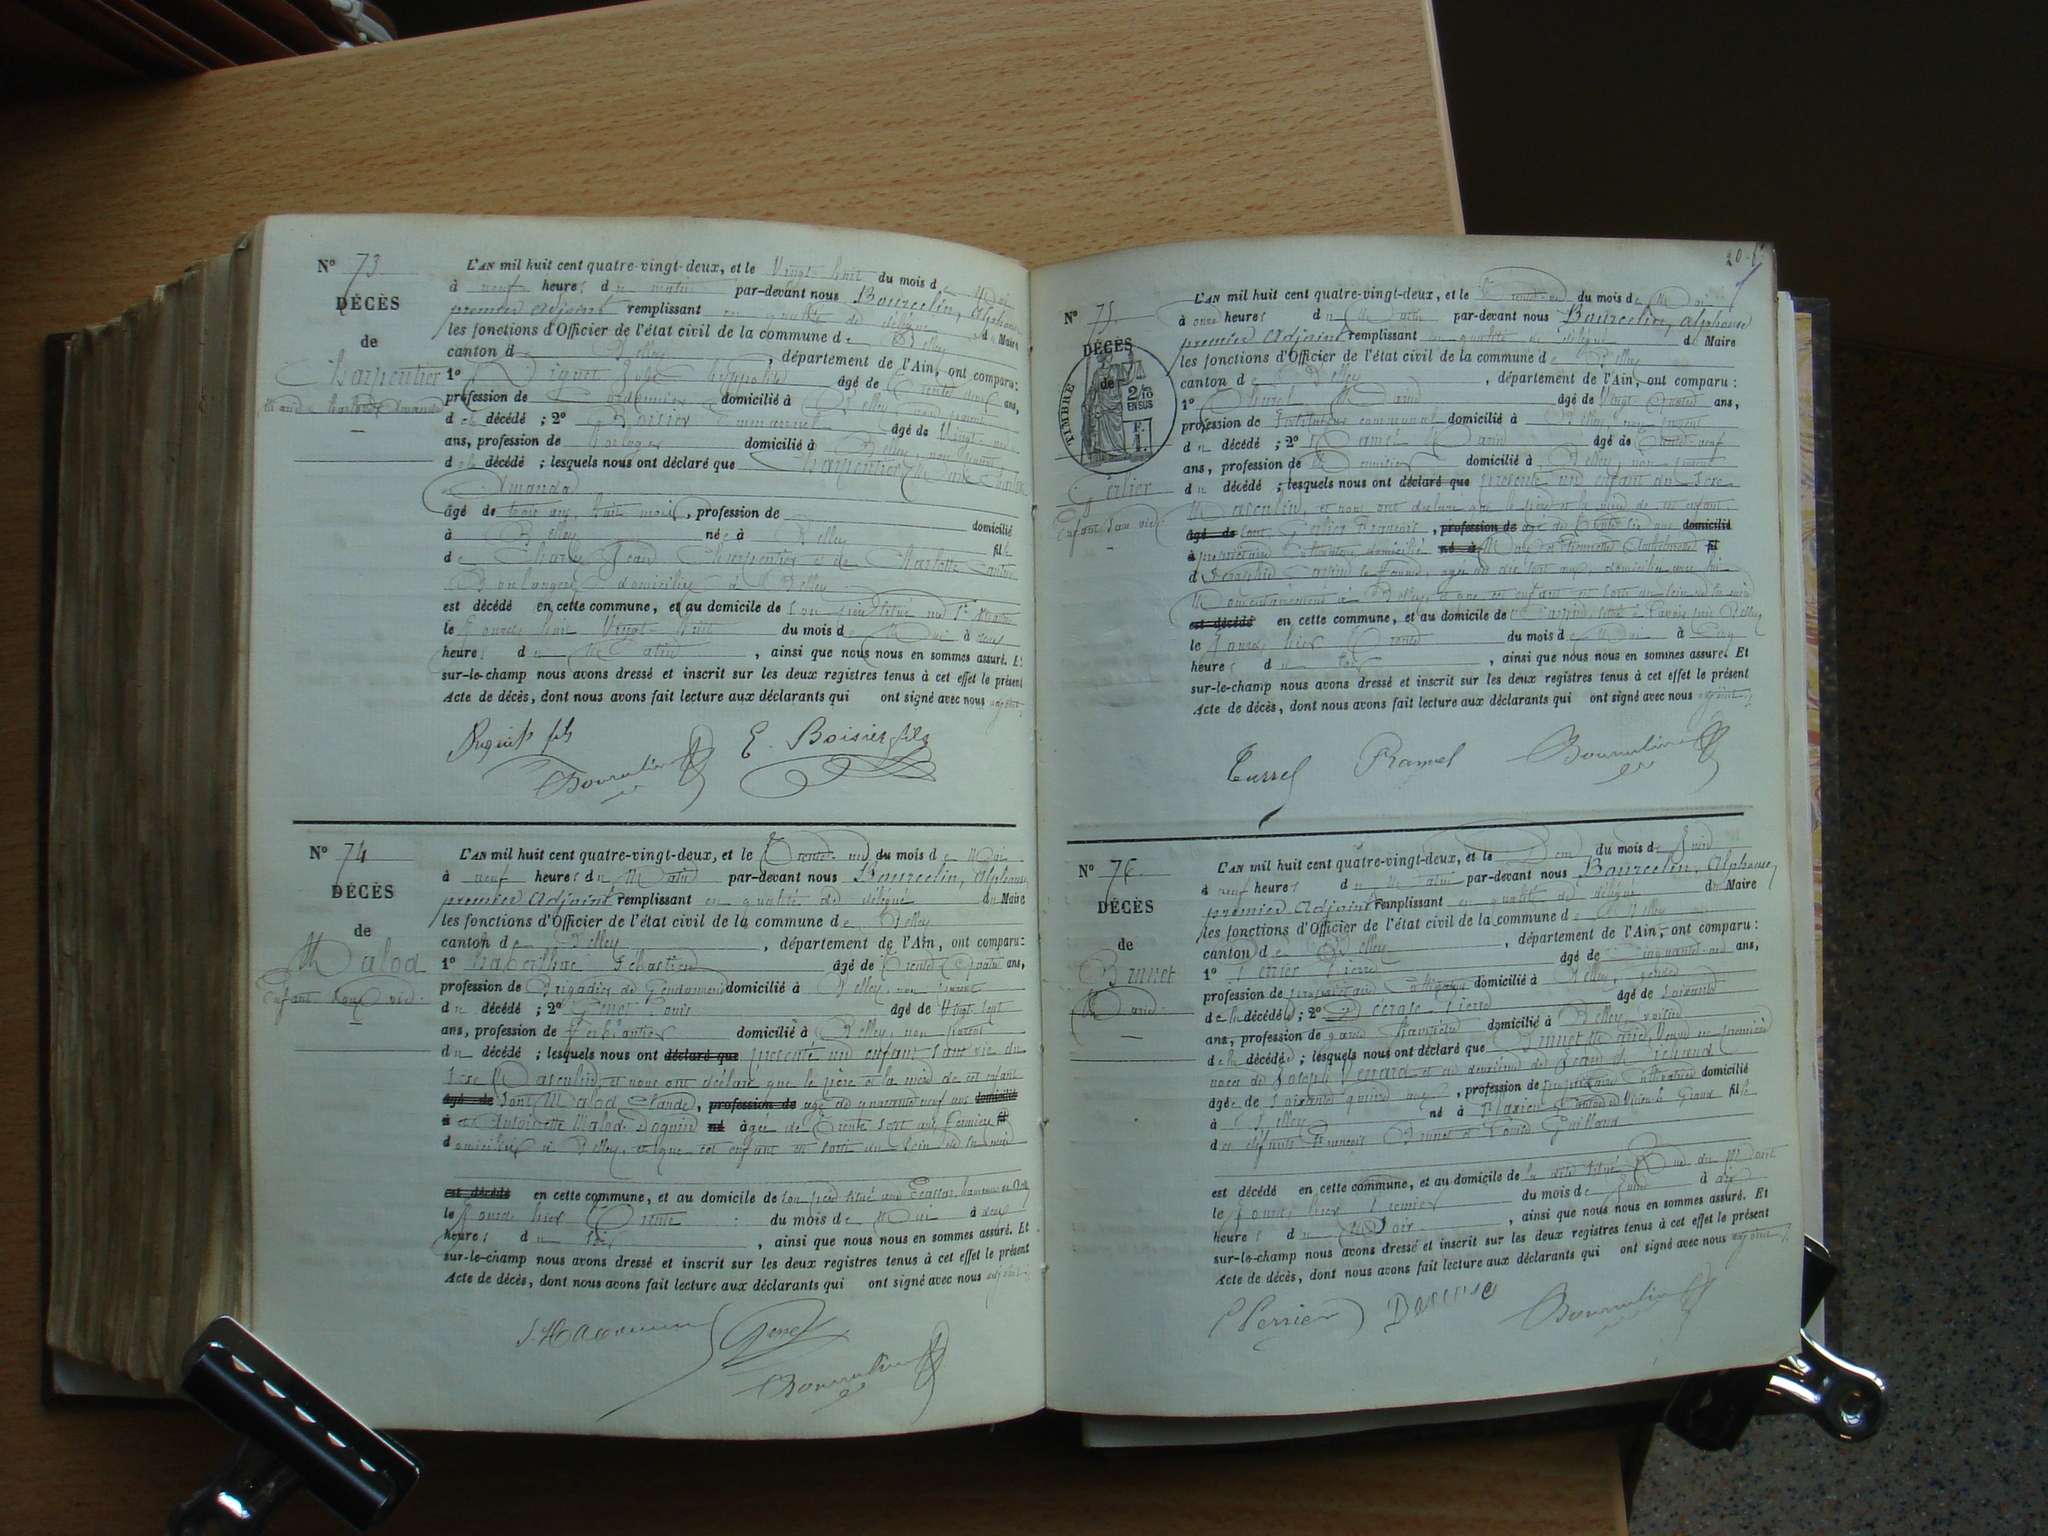 N° 73
DÉCÈS
de
Charpentier
L'AN mil huit cent quatre-vingt-deux, et le Vingt-huit du mois de Mai
à neuf heures du matin par-devant nous Bourcelin, Alphonse
premier adjoint remplissant en qualité de délégué du Maire
les fonctions d'Officier de l'état civil de la commune de Belley
canton de Belley, département de l'Ain, ont comparu:
1° âgé de ans,
profession de domicilié à Belley, non parent
de la décédé; 2° Boisier Emmanuel âgé de Vingt
ans, profession de horloger domicilié à Belley, non parent
de la décédé; lesquels nous ont déclaré que Charpentier Marie
Amanda
âgée de trois ans, huit mois, profession de domicilié
à Belley née à Belley fille
de Jean Charpentier et de Charlotte
Boulangers domiciliés à Belley
est décédé en cette commune, et au domicile de son père situé
le jourd'hui Vingt-huit du mois de Mai à
heures du Matin, ainsi que nous nous en sommes assuré. Et
sur-le-champ nous avons dressé et inscrit sur les deux registres tenus à cet effet le présent
Acte de décès, dont nous avons fait lecture aux déclarants qui ont signé avec nous adjoint.
E. Boisier fils
Bourcelin
N° 74
DÉCÈS
de
Malod
Enfant sans vie.
L'AN mil huit cent quatre-vingt-deux, et le Trente-un du mois de Mai
à neuf heures du Matin par-devant nous Bourcelin, Alphonse,
premier adjoint remplissant en qualité de délégué du Maire
les fonctions d'Officier de l'état civil de la commune de Belley
canton de Belley, département de l'Ain, ont comparu:
1° Sébastien âgé de Trente-Quatre ans,
profession de Brigadier de Gendarmerie domicilié à Belley, non parent
du décédé; 2° Genet Louis âgé de Vingt-sept
ans, profession de ferblantier domicilié à Belley, non parent
du décédé; lesquels nous ont déclaré que présenté un enfant sans vie du
sexe Masculin, et nous ont déclaré que le père et la mère de cet enfant
âgé de sont Malod Claude, profession de âgé de quarante neuf ans domicilié
à et Antoinette Malod né à âgée de Trente sept ans fermiers fil
domiciliés à Belley, et que cet enfant est sorti du sein de sa mère
est décédé en cette commune, et au domicile de son père situé aux Ecassaz hameau de
le jourd'hier Trente du mois de Mai à deux
heures du soir, ainsi que nous nous en sommes assuré. Et
sur-le-champ nous avons dressé et inscrit sur les deux registres tenus à cet effet le présent
Acte de décès, dont nous avons fait lecture aux déclarants qui ont signé avec nous adjoint.
Genet
Bourcelin
N° 75
DÉCÈS
de
TIMBRE
2/10
EN SUS
F.
1.
Gerlier
Enfant sans vie.
L'AN mil huit cent quatre-vingt-deux, et le Trente-un du mois de Mai
à onze heures du Matin par-devant nous Bourcelin, Alphonse
premier adjoint remplissant en qualité de délégué du Maire
les fonctions d'Officier de l'état civil de la commune de Belley
canton de Belley, département de l'Ain, ont comparu:
1° âgé de Vingt-Quatre ans,
profession de Instituteur communal domicilié à Belley, non parent
du décédé; 2° Ramel âgé de Trente-neuf
ans, profession de Menuisier domicilié à Belley, non parent
du décédé; lesquels nous ont déclaré que présenté un enfant du sexe
Masculin, et nous ont déclaré que le père et la mère de cet enfant
âgé de sont Gerlier François, profession de âgé de Trente six ans domicilié
à propriétaire cultivateur domicilié né à fil
d sa femme, âgée de dix sept ans, domiciliée avec lui
Momentanément à Belley, et que cet enfant est sorti du sein de sa mère
est décédé en cette commune, et au domicile de
le jourd'hier Trente du mois de Mai à Cinq
heures du soir, ainsi que nous nous en sommes assuré. Et
sur-le-champ nous avons dressé et inscrit sur les deux registres tenus à cet effet le présent
Acte de décès, dont nous avons fait lecture aux déclarants qui ont signé avec nous adjoint.
Ramel
Bourcelin
N° 76
DÉCÈS
de
Brunet
Marie
L'AN mil huit cent quatre-vingt-deux, et le Deux du mois de Juin
à neuf heures du Matin par-devant nous Bourcelin, Alphonse,
premier adjoint remplissant en qualité de délégué du Maire
les fonctions d'Officier de l'état civil de la commune de Belley
canton de Belley, département de l'Ain, ont comparu:
1° Perrier Pierre âgé de Cinquante-un ans,
profession de propriétaire domicilié à Belley, gendre
de la décédée; 2° Pierre âgé de soixante
ans, profession de garde domicilié à Belley, voisin
de la décédée; lesquels nous ont déclaré que Brunet Marie, Veuve en premières
noces de Joseph Venard et en deuxième de Jean
âgée de soixante quinze ans, profession de propriétaire cultivatrice domicilié
à Belley né à fille
des défunts François Brunet et Louise
est décédé en cette commune, et au domicile de situé Rue du
le jourd'hier Premier du mois de Juin à dix
heures du soir, ainsi que nous nous en sommes assuré. Et
sur-le-champ nous avons dressé et inscrit sur les deux registres tenus à cet effet le présent
Acte de décès, dont nous avons fait lecture aux déclarants qui ont signé avec nous adjoint.
Perrier
Bourcelin